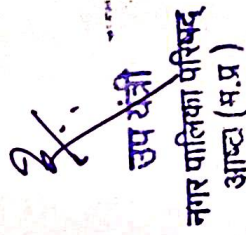 उप यंत्री
नगर पालिका परिषद्
आष्टा (म.प्र)